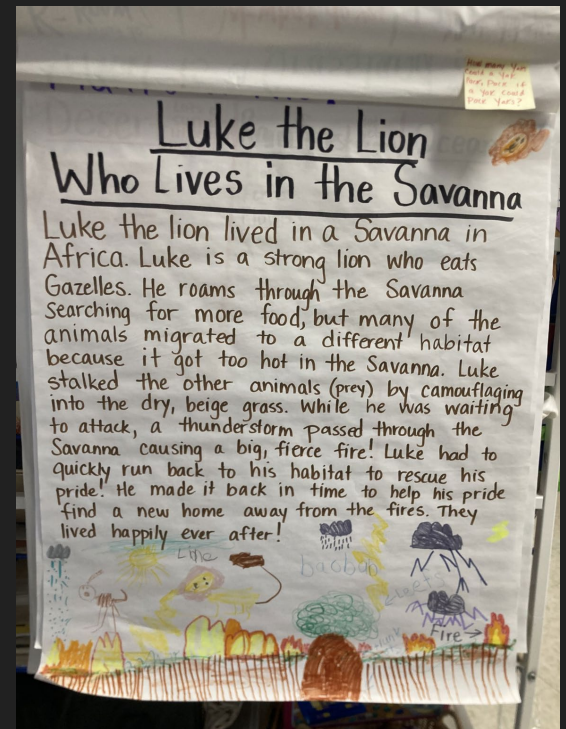 How many Yaks
could a Yak
Pack, Pack if
a Yak could
Pack Yaks?
Luke the Lion
Who Lives in the Savanna
Luke the lion lived in a Savanna in
Africa. Luke is a strong lion who eats
Gazelles. He roams through the Savanna
Searching for more food, but many of the
animals migrated to a different habitat
because it got too hot in the Savanna. Luke
stalked the other animals (prey) by camouflaging
into the dry, beige grass. While he was waiting
to attack, a thunderstorm passed through the
Savanna causing a big, fierce fire! Luke had to
quickly run back to his habitat to rescue his
pride! He made it back in time to help his pride
find a new home away from the fires. They
lived happily ever after!
baobab
Fire